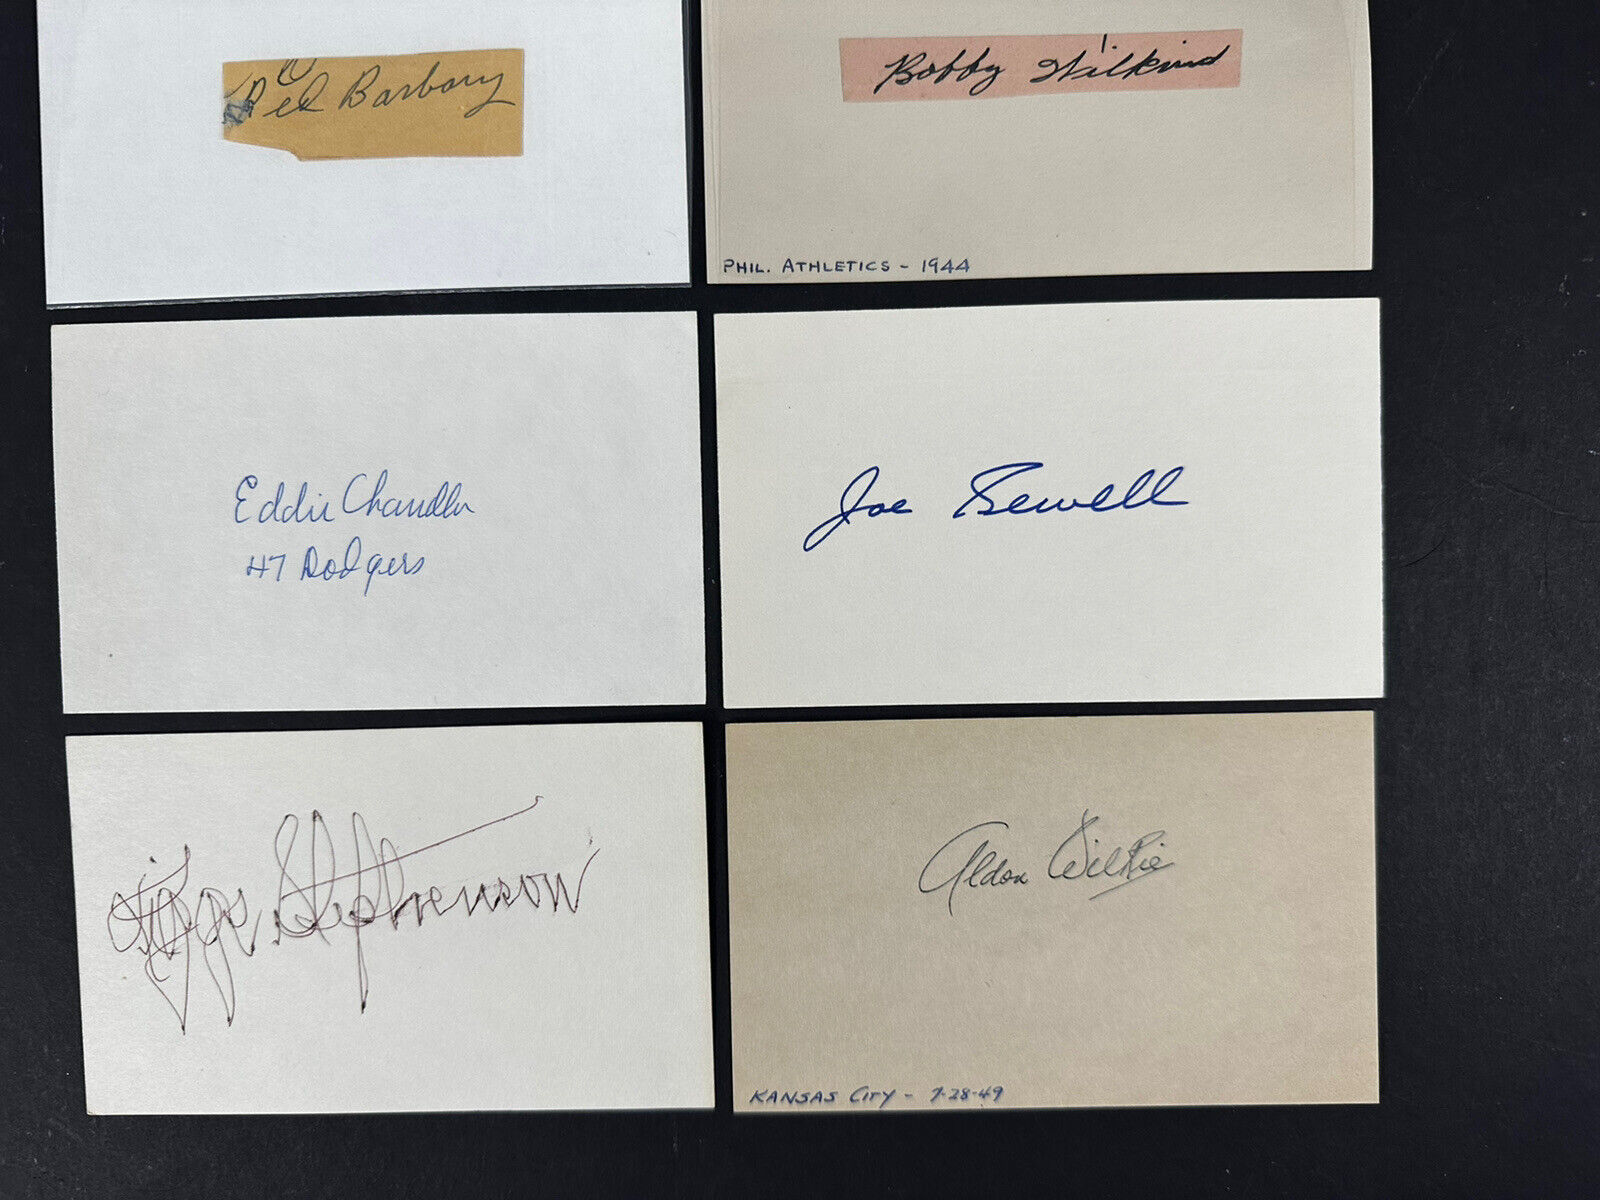 Red Barbary
Bobby Wilkins
PHIL. ATHLETICS - 1944
Eddie Chandler
47 Dodgers
Joe Sewell
Riggs Stephenson
Aldon Wilkie
KANSAS CITY - 7-28-49